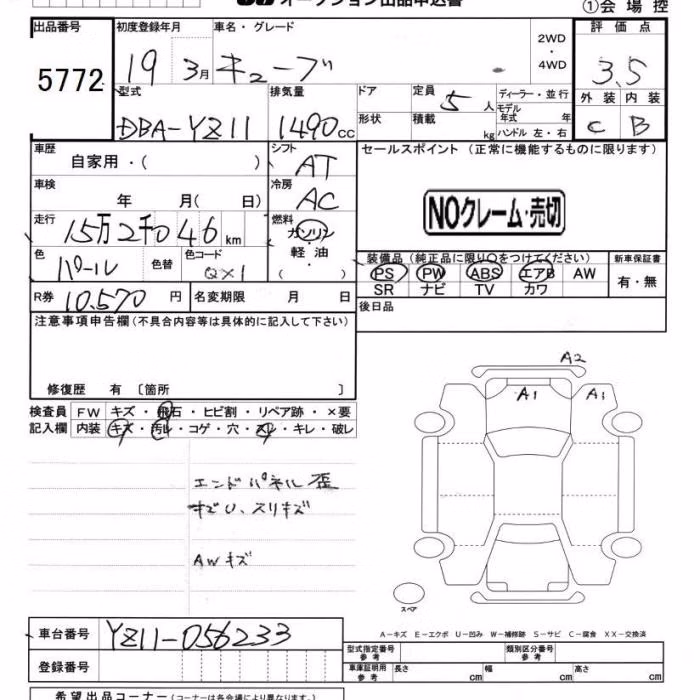 オークション出品申込書
①会 場 控
出品番号
5772
初度登録年月
19 3月
車名・グレード
キューブ
2WD
・
4WD
評 価 点
3.5
外 装 内 装
C B
型式
DBA-YZ11
排気量
1490cc
ドア
形状
定員
5人
積載
kg
ディーラー・並行
モデル
年式 年
ハンドル 左・右
車歴
自家用・( )
シフト
AT
車検
年 月( 日)
冷房
AC
走行
15万2千046km
燃料
ガソリン
軽 油
・
( )
色
パール
色替
色コード
QX1
R券 10.570 円
名変期限 月 日
セールスポイント (正常に機能するものに限ります)
NOクレーム・売切
装備品(純正品に限り○をつけてください)
PS PW ABS エアB AW
SR ナビ TV カワ
新車保証書
有・無
後日品
注意事項申告欄(不具合内容等は具体的に記入して下さい)
修復歴 有 〔箇所 〕
検査員 FW キズ・飛石・ヒビ割・リペア跡・×要
記入欄 内装 キズ・汚レ・コゲ・穴・スレ・キレ・破レ
エンドパネル歪
キズU、スリキズ
AWキズ
A2
A1 A1
スペア
A−キズ E−エクボ U−凹み W−補修跡 S−サビ C−腐食 XX−交換済
車台番号 YZ11-056233
登録番号
型式指定番号
参 考
類別区分番号
参 考
車庫証明用
参 考
長さ cm 幅 cm 高さ cm
希望出品コーナー(コーナーは各会場により異なります。)